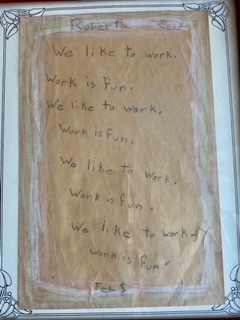 Robert
We like to work.
Work is fun.
We like to work.
Work is fun.
We like to work.
Work is fun.
We like to work
Work is fun.